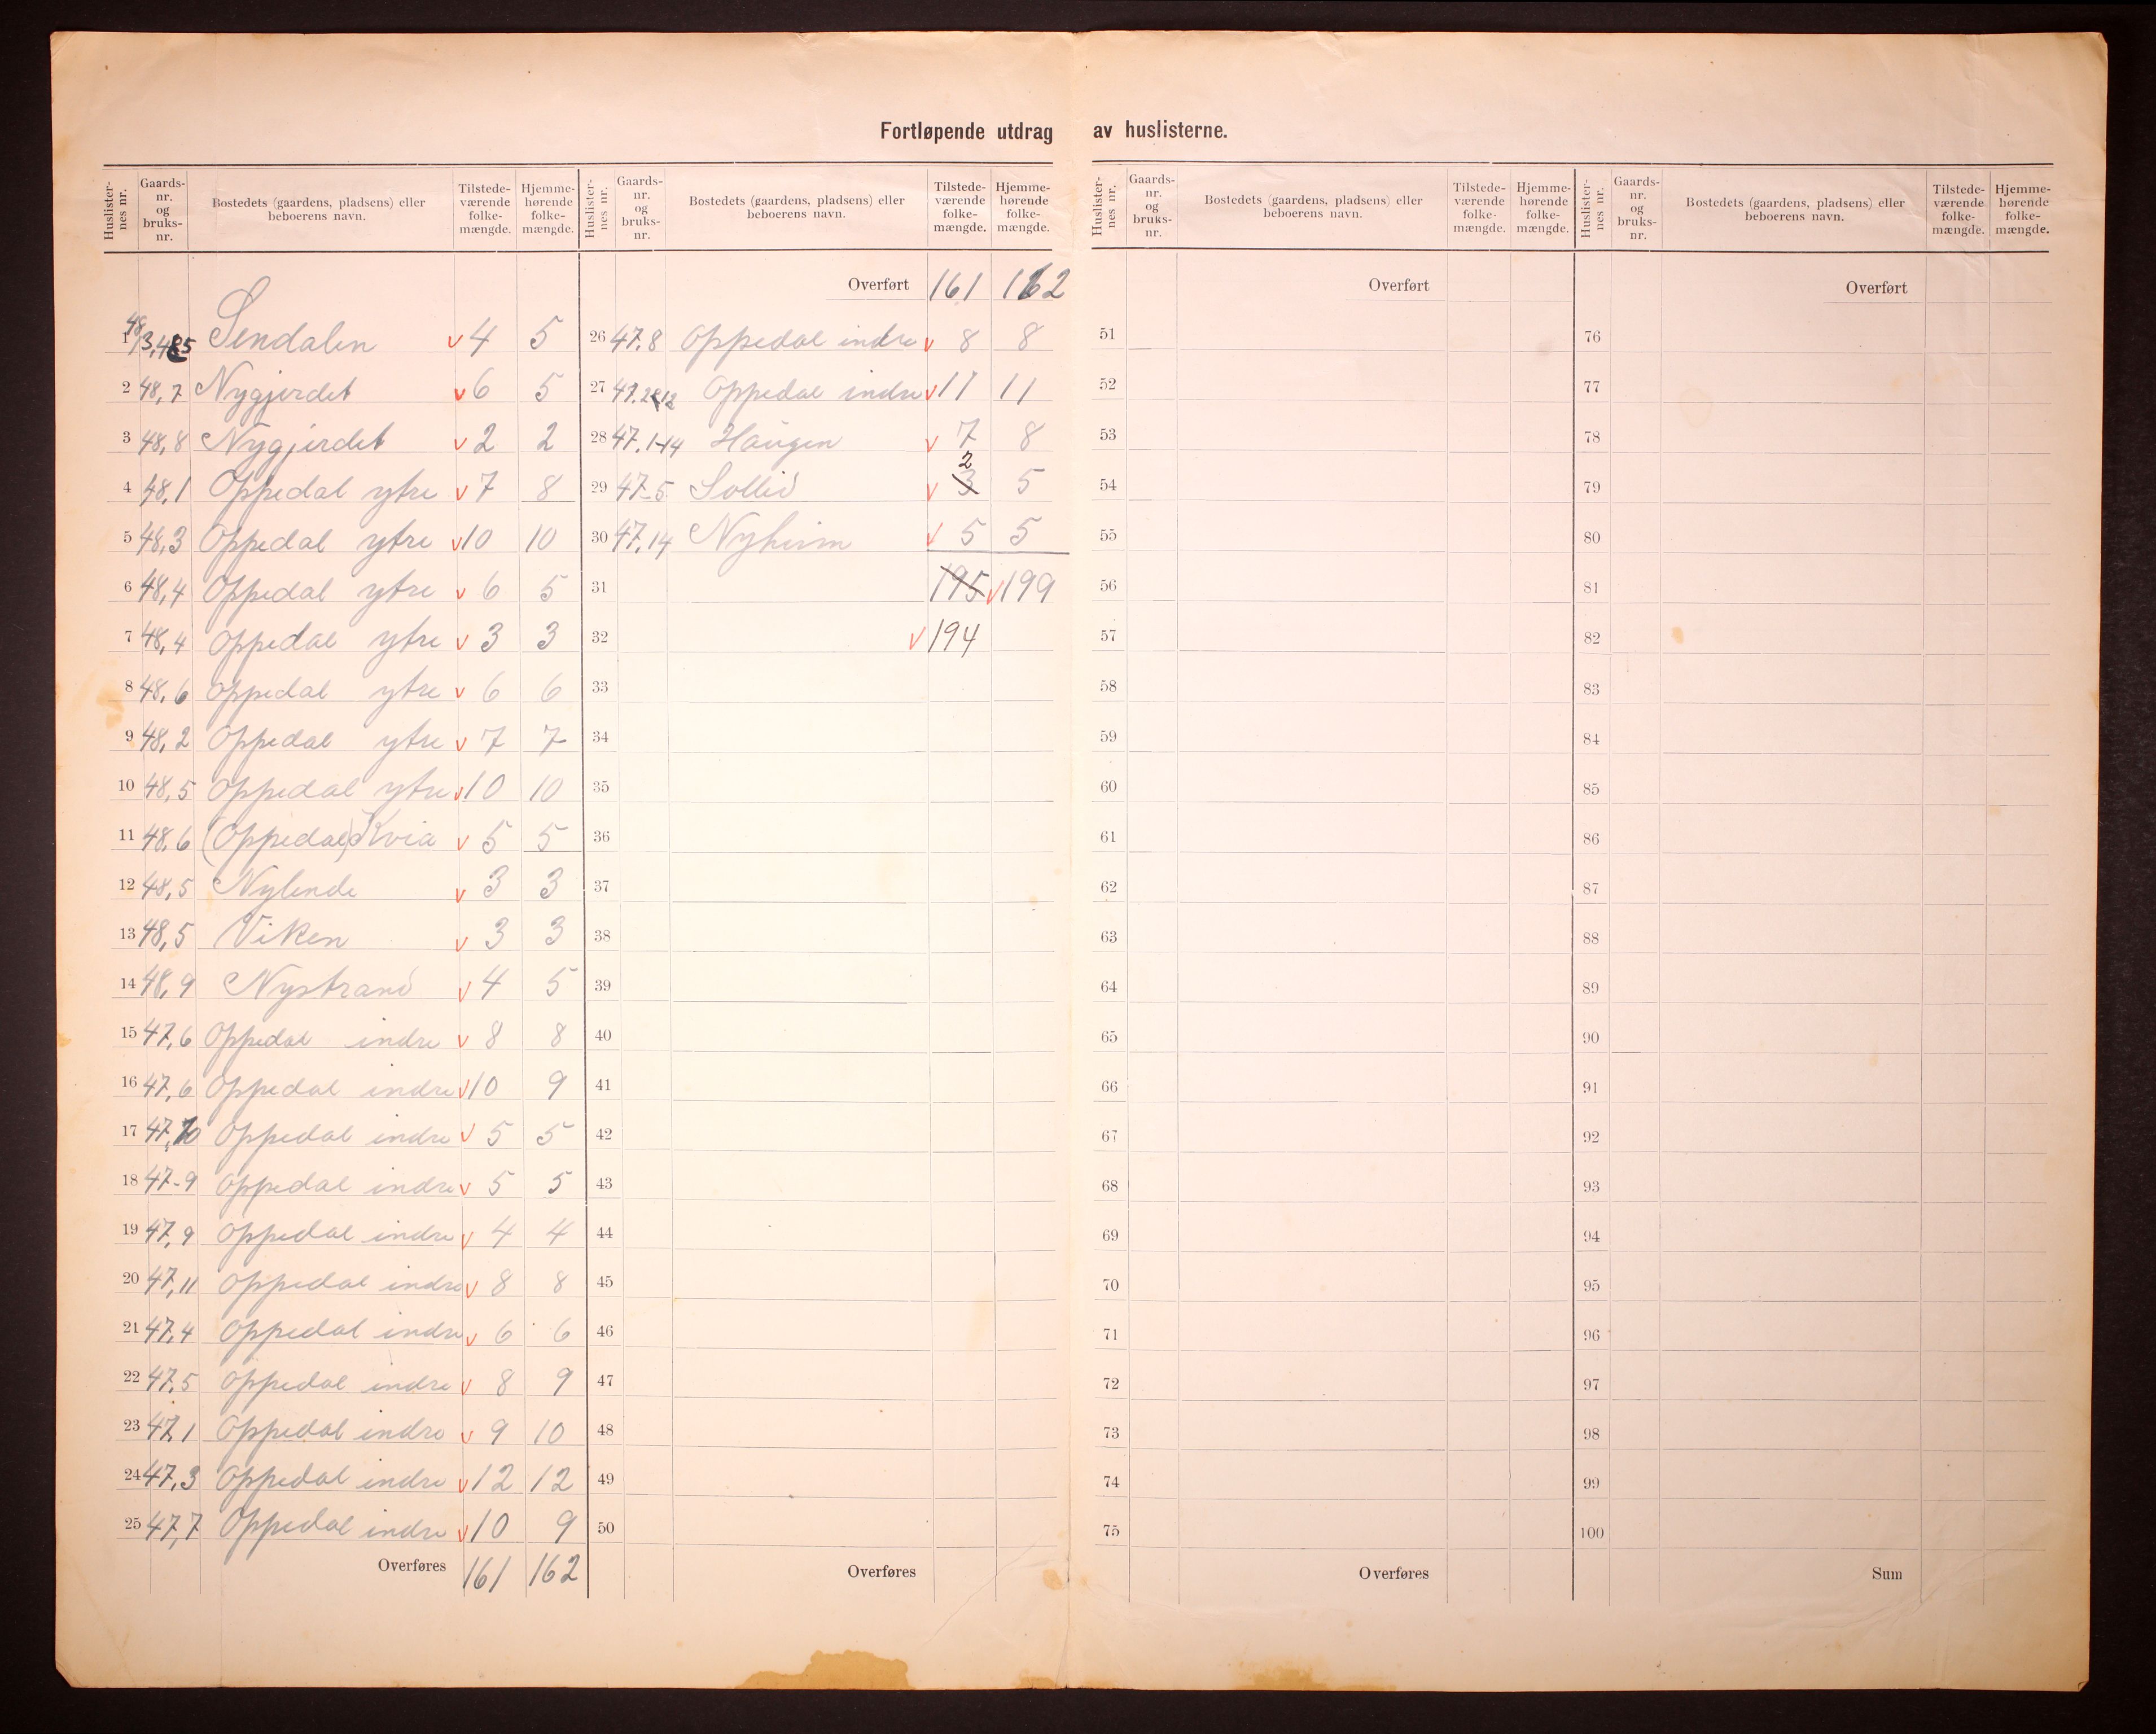 Fortløpende utdrag av huslisterne.
Huslisternes nr. Gaards-nr. og bruks-nr. Bostedets (gaardens, pladsens) eller beboerens navn. Tilstede-værende folke-mængde. Hjemme-hørende folke-mængde.
1 48/3,4&5 Sendalen v 4 5
2 48,7 Nygjerdet v 6 5
3 48,8 Nygjerdet v 2 2
4 48,1 Oppedal ytre v 7 8
5 48,3 Oppedal ytre v 10 10
6 48,4 Oppedal ytre v 6 5
7 48,4 Oppedal ytre v 3 3
8 48,6 Oppedal ytre v 6 6
9 48,2 Oppedal ytre v 7 7
10 48,5 Oppedal ytre v 10 10
11 48,6 (Oppedal) Kvia v 5 5
12 48,5 Nylende v 3 3
13 48,5 Viken v 3 3
14 48,9 Nystrand v 4 5
15 47,6 Oppedal indre v 8 8
16 47,6 Oppedal indre v 10 9
17 47,10 Oppedal indre v 5 5
18 47-9 Oppedal indre v 5 5
19 47,9 Oppedal indre v 4 4
20 47,11 Oppedal indre v 8 8
21 47,4 Oppedal indre v 6 6
22 47,5 Oppedal indre v 8 9
23 47,1 Oppedal indre v 9 10
24 47,3 Oppedal indre v 12 12
25 47,7 Oppedal indre v 10 9
Overføres 161 162
Huslisternes nr. Gaards-nr. og bruks-nr. Bostedets (gaardens, pladsens) eller beboerens navn. Tilstede-værende folke-mængde. Hjemme-hørende folke-mængde.
Overført 161 162
26 47.8 Oppedal indre v 8 8
27 47.2&12 Oppedal indre v 11 11
28 47.1-14 Haugen v 7 8
29 47-5 Sollid v 3 2 5
30 47,14 Nyheim v 5 5
31 195 v 199
32 v 194
33
34
35
36
37
38
39
40
41
42
43
44
45
46
47
48
49
50
Overføres
Huslisternes nr. Gaards-nr. og bruks-nr. Bostedets (gaardens, pladsens) eller beboerens navn. Tilstede-værende folke-mængde. Hjemme-hørende folke-mængde.
Overført
51
52
53
54
55
56
57
58
59
60
61
62
63
64
65
66
67
68
69
70
71
72
73
74
75
Overføres
Huslisternes nr. Gaards-nr. og bruks-nr. Bostedets (gaardens, pladsens) eller beboerens navn. Tilstede-værende folke-mængde. Hjemme-hørende folke-mængde.
Overført
76
77
78
79
80
81
82
83
84
85
86
87
88
89
90
91
92
93
94
95
96
97
98
99
100
Sum